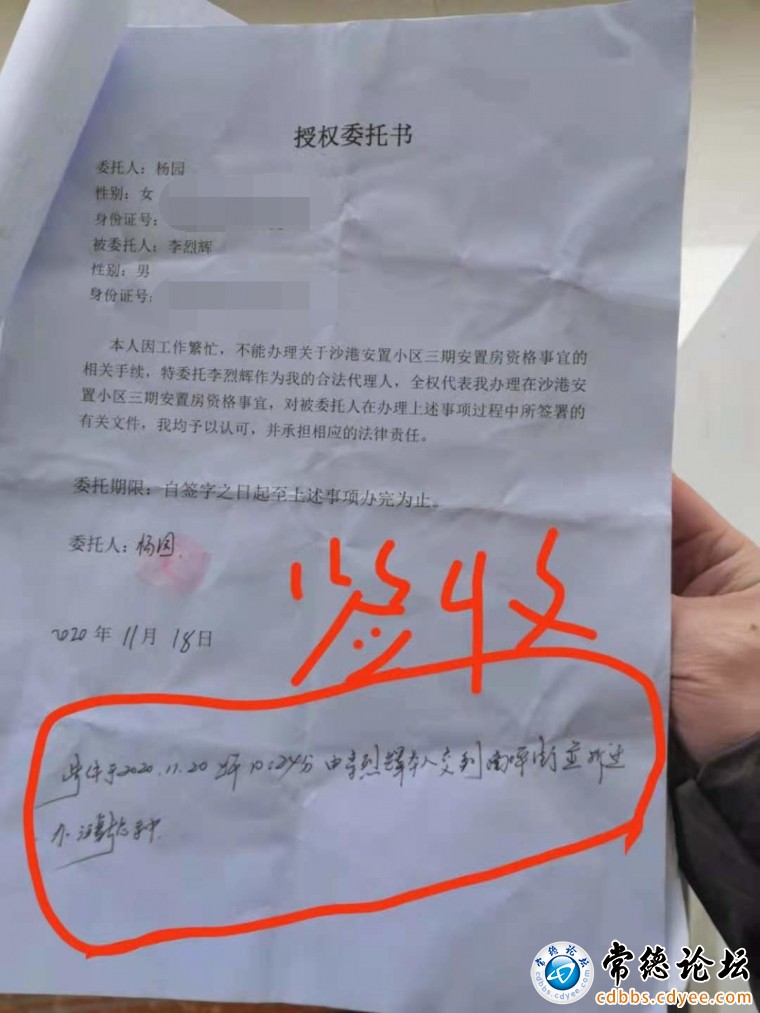 授权委托书
委托人：杨园
性别：女
身份证号：
被委托人：李烈辉
性别：男
身份证号：
本人因工作繁忙，不能办理关于沙港安置小区三期安置房资格事宜的
相关手续，特委托李烈辉作为我的合法代理人，全权代表我办理在沙港安
置小区三期安置房资格事宜，对被委托人在办理上述事项过程中所签署的
有关文件，我均予以认可，并承担相应的法律责任。
委托期限：自签字之日起至上述事项办完为止。
委托人：杨园
签收
2020年11月18日
此件于2020.11.20 上午10:24分由李烈辉本人交到南坪街
手中.
常德论坛
常德论坛
cdbbs.cdyee.com